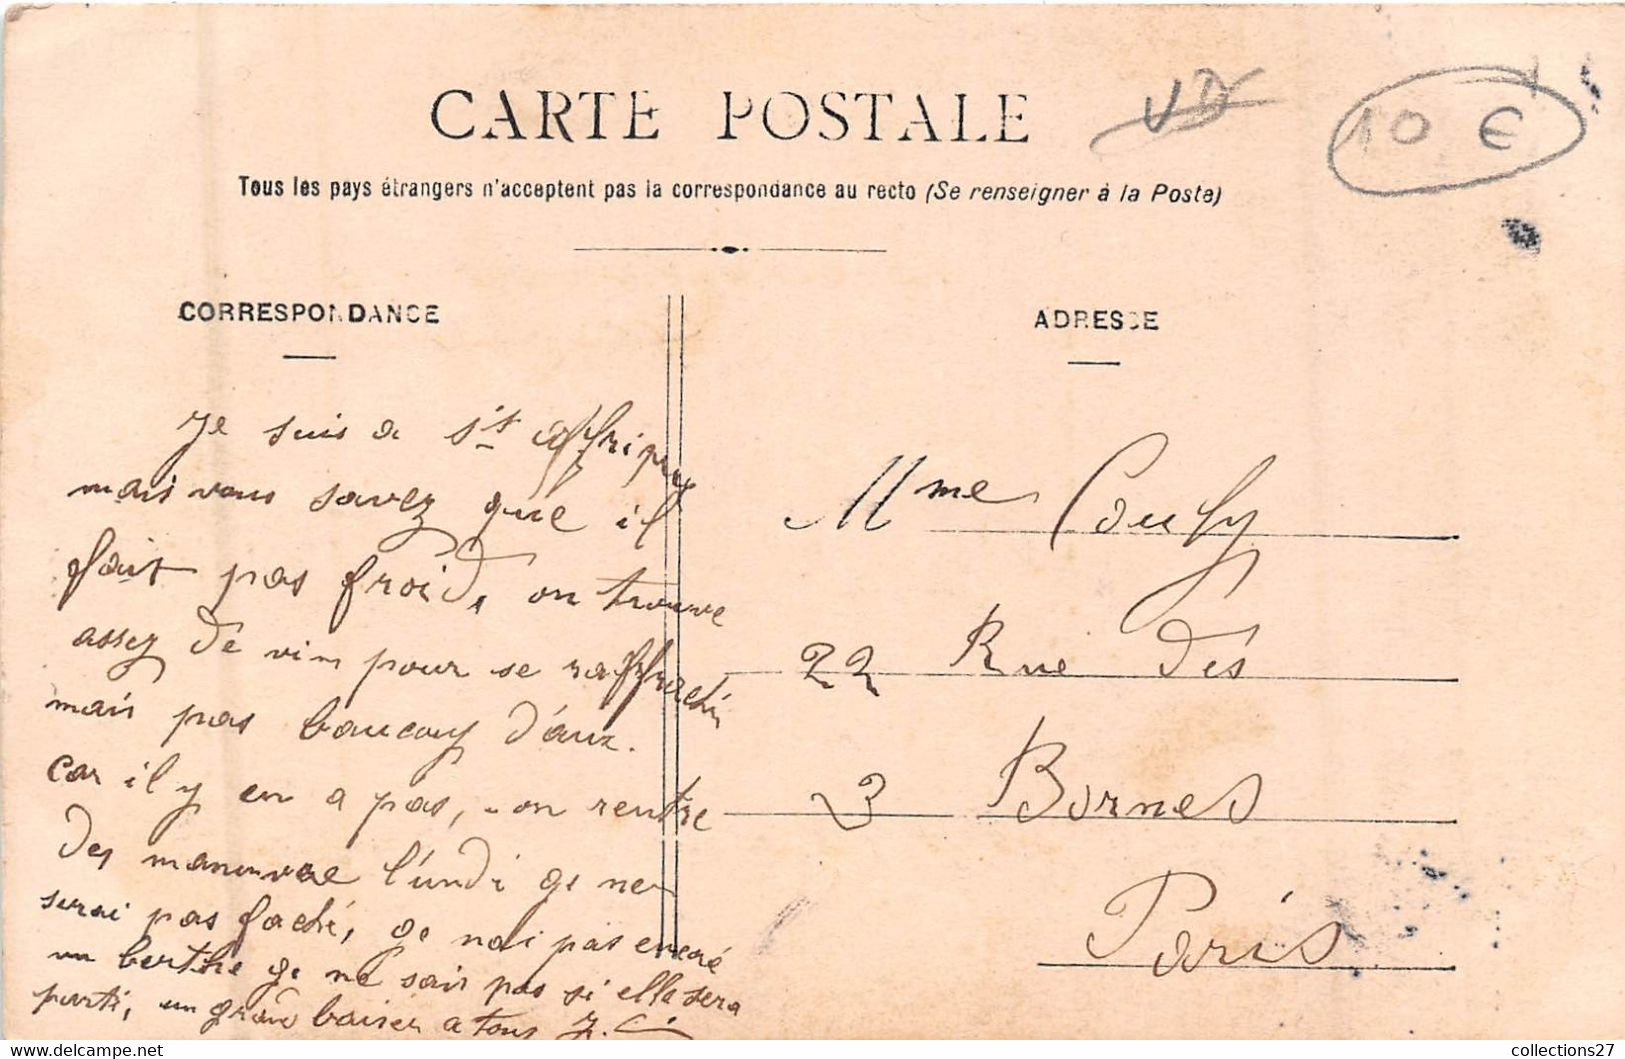 CARTE POSTALE
10 €
Tous les pays étrangers n'acceptent pas la correspondance au recto (Se renseigner à la Poste)
CORRESPONDANCE
ADRESSE
Je suis a St affrique
mais vous savez que il
fait pas froid, on trouve
assez de vin pour se raffrachir
mais pas baucoup d'aux.
Car il y en a pas, on rentre
des maneuvre l'undi ge nen
serai pas faché, ge nai pas encoré
vu berthe ge ne sais pas si ella sera
parti, un grand baiser a tous J.C.
Mme Couly
22 Rue des
3 Bornes
Paris
collections27